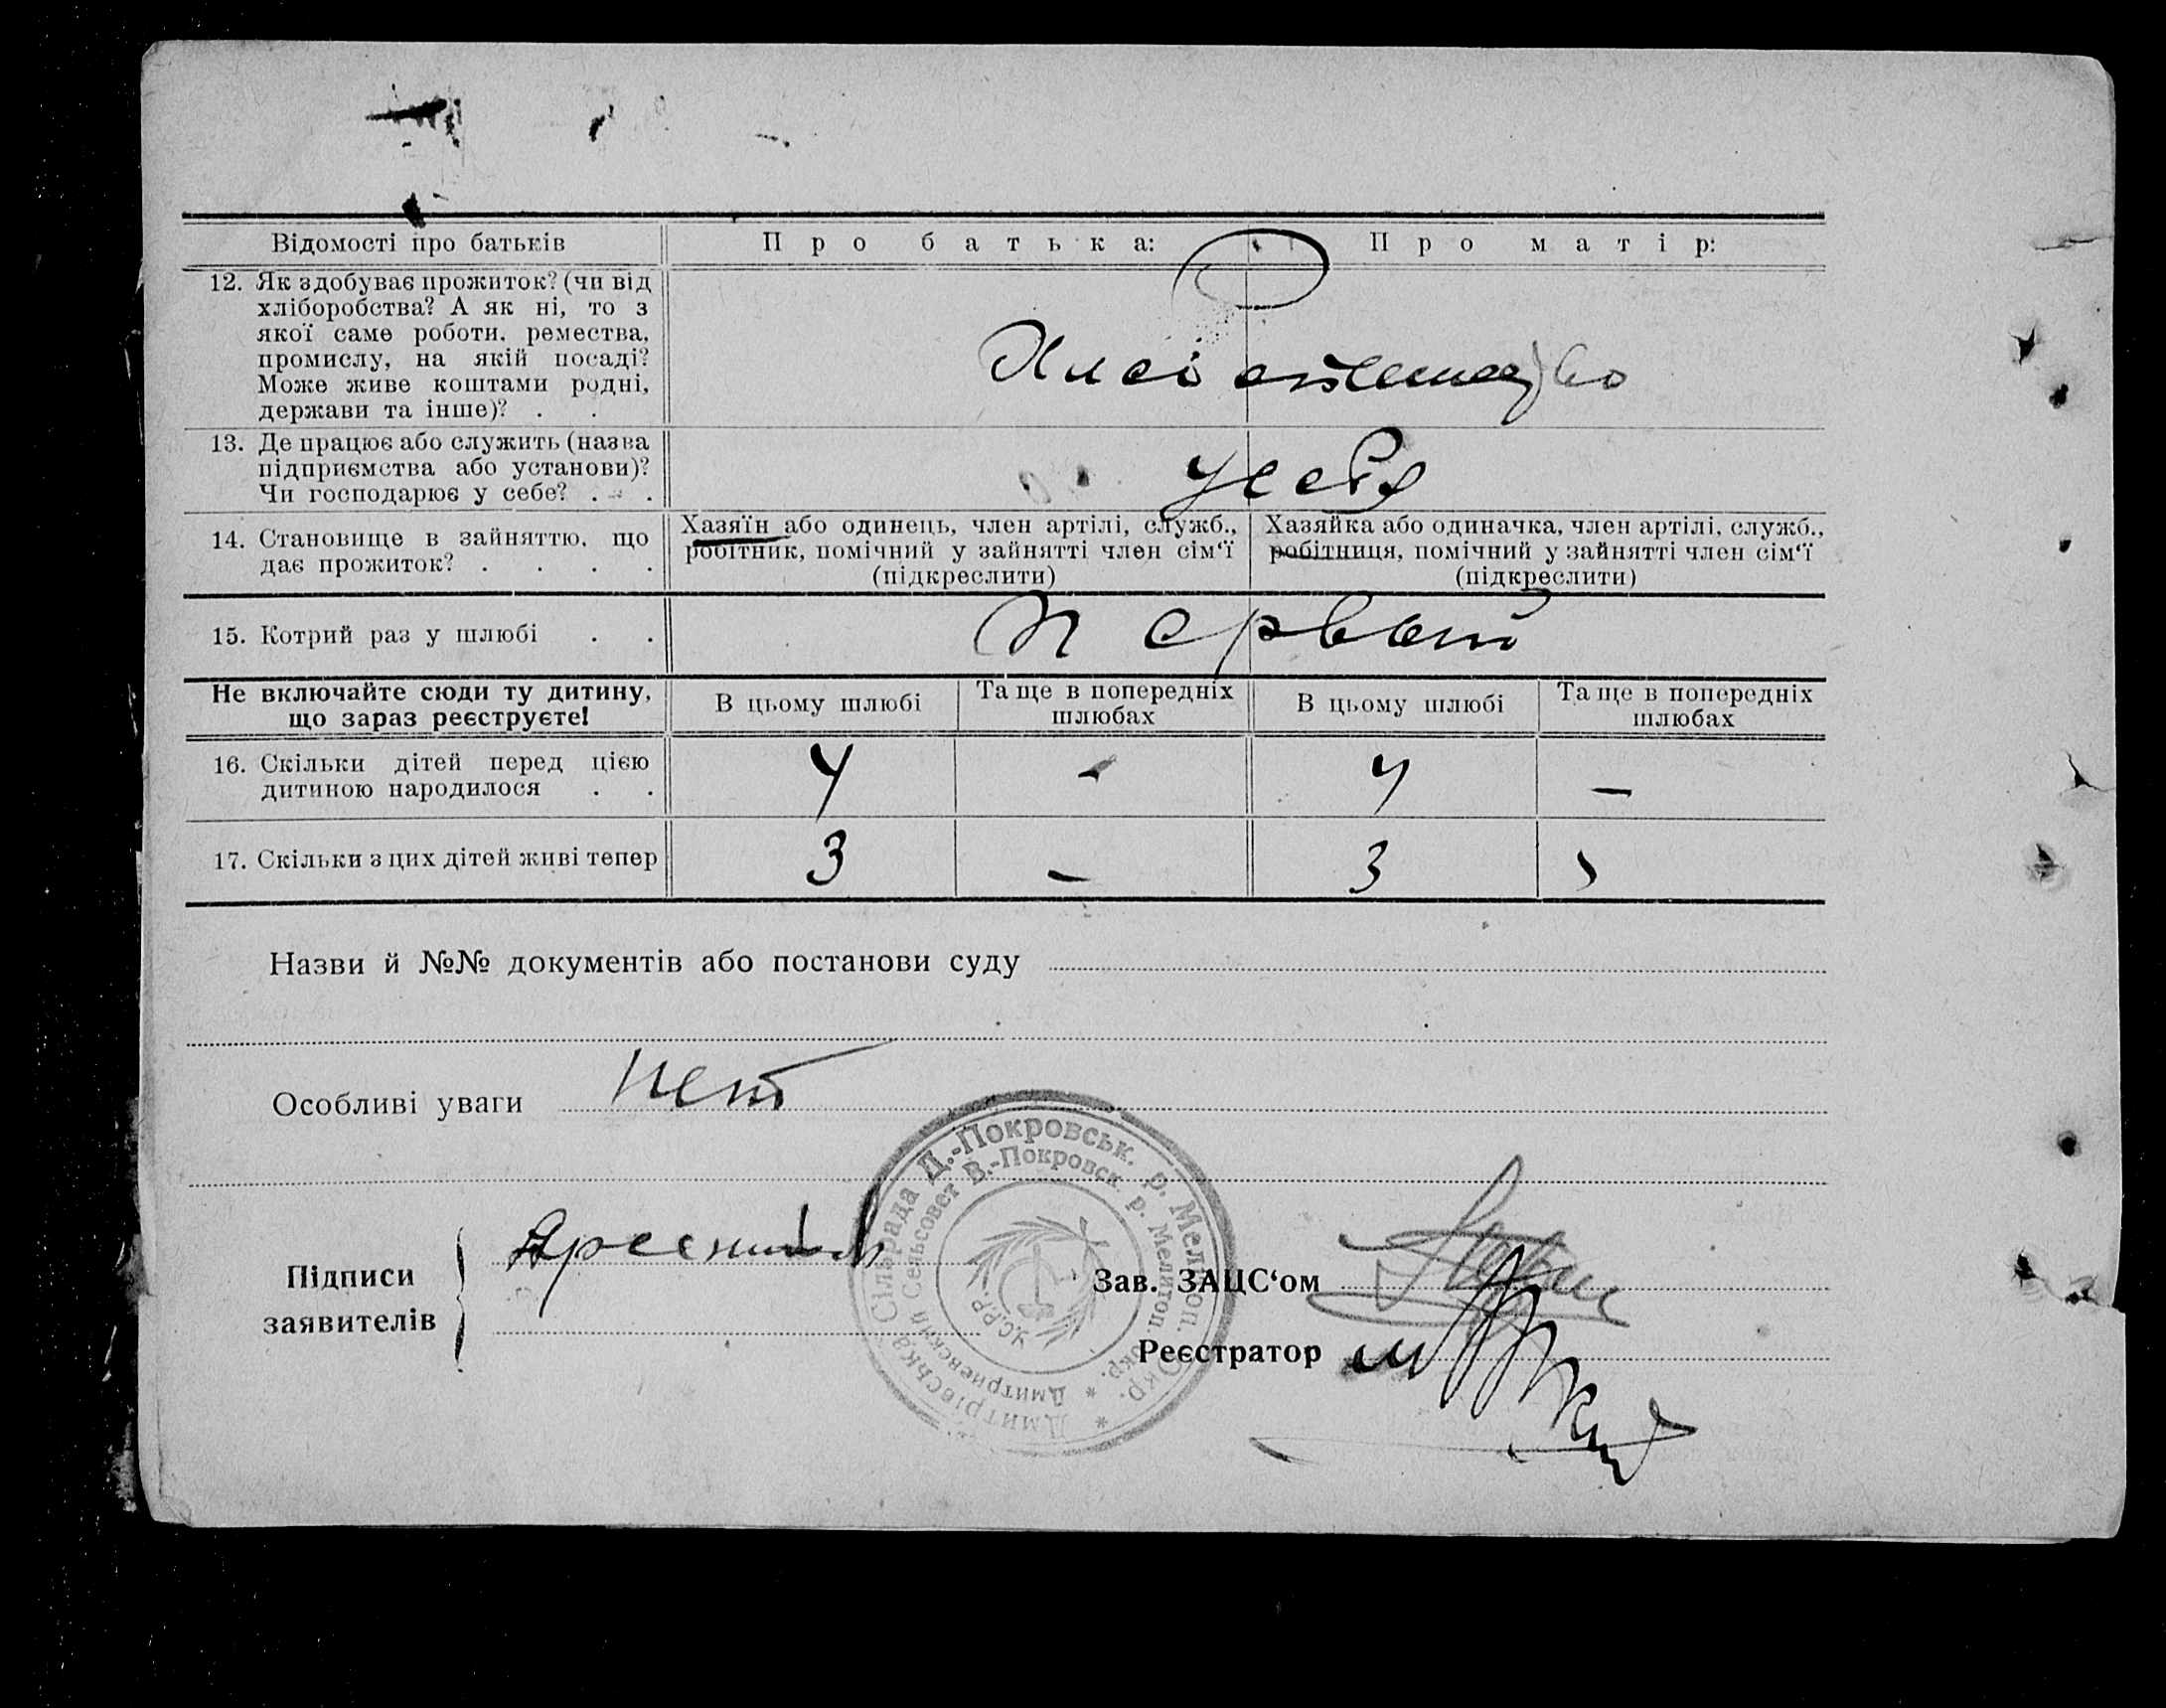 Відомості про батьків
Про батька:
Про матір:
12. Як здобуває прожиток? (чи від
хліборобства? А як ні, то з
якої саме роботи, ремества,
промислу, на якій посаді?
Може живе коштами родні,
держави та інше)? . .
13. Де працює або служить (назва
підприємства або установи)?
Чи господарює у себе? . . .
у себя
14. Становище в зайняттю, що
дає прожиток? . . . .
Хазяїн або одинець, член артілі, служб.,
робітник, помічний у зайнятті член сім'ї
(підкреслити)
Хазяйка або одиначка, член артілі, служб.,
робітниця, помічний у зайнятті член сім'ї
(підкреслити)
15. Котрий раз у шлюбі . .
первый
Не включайте сюди ту дитину,
що зараз реєструєте!
В цьому шлюбі
Та ще в попередніх
шлюбах
В цьому шлюбі
Та ще в попередніх
шлюбах
16. Скільки дітей перед цією
дитиною народилося . .
4 - 4 -
17. Скільки з цих дітей живі тепер
3 - 3
Назви й №№ документів або постанови суду
Особливі уваги нет
Підписи
заявителів
Зав. ЗАЦС'ом
Реєстратор
Дмитрієвська Сільрада Д.-Покровськ. р. Мелітоп. Окр. *
Дмитриевский Сельсовет В.-Покровск. р. Мелитоп. окр. *
У.С.Р.Р.